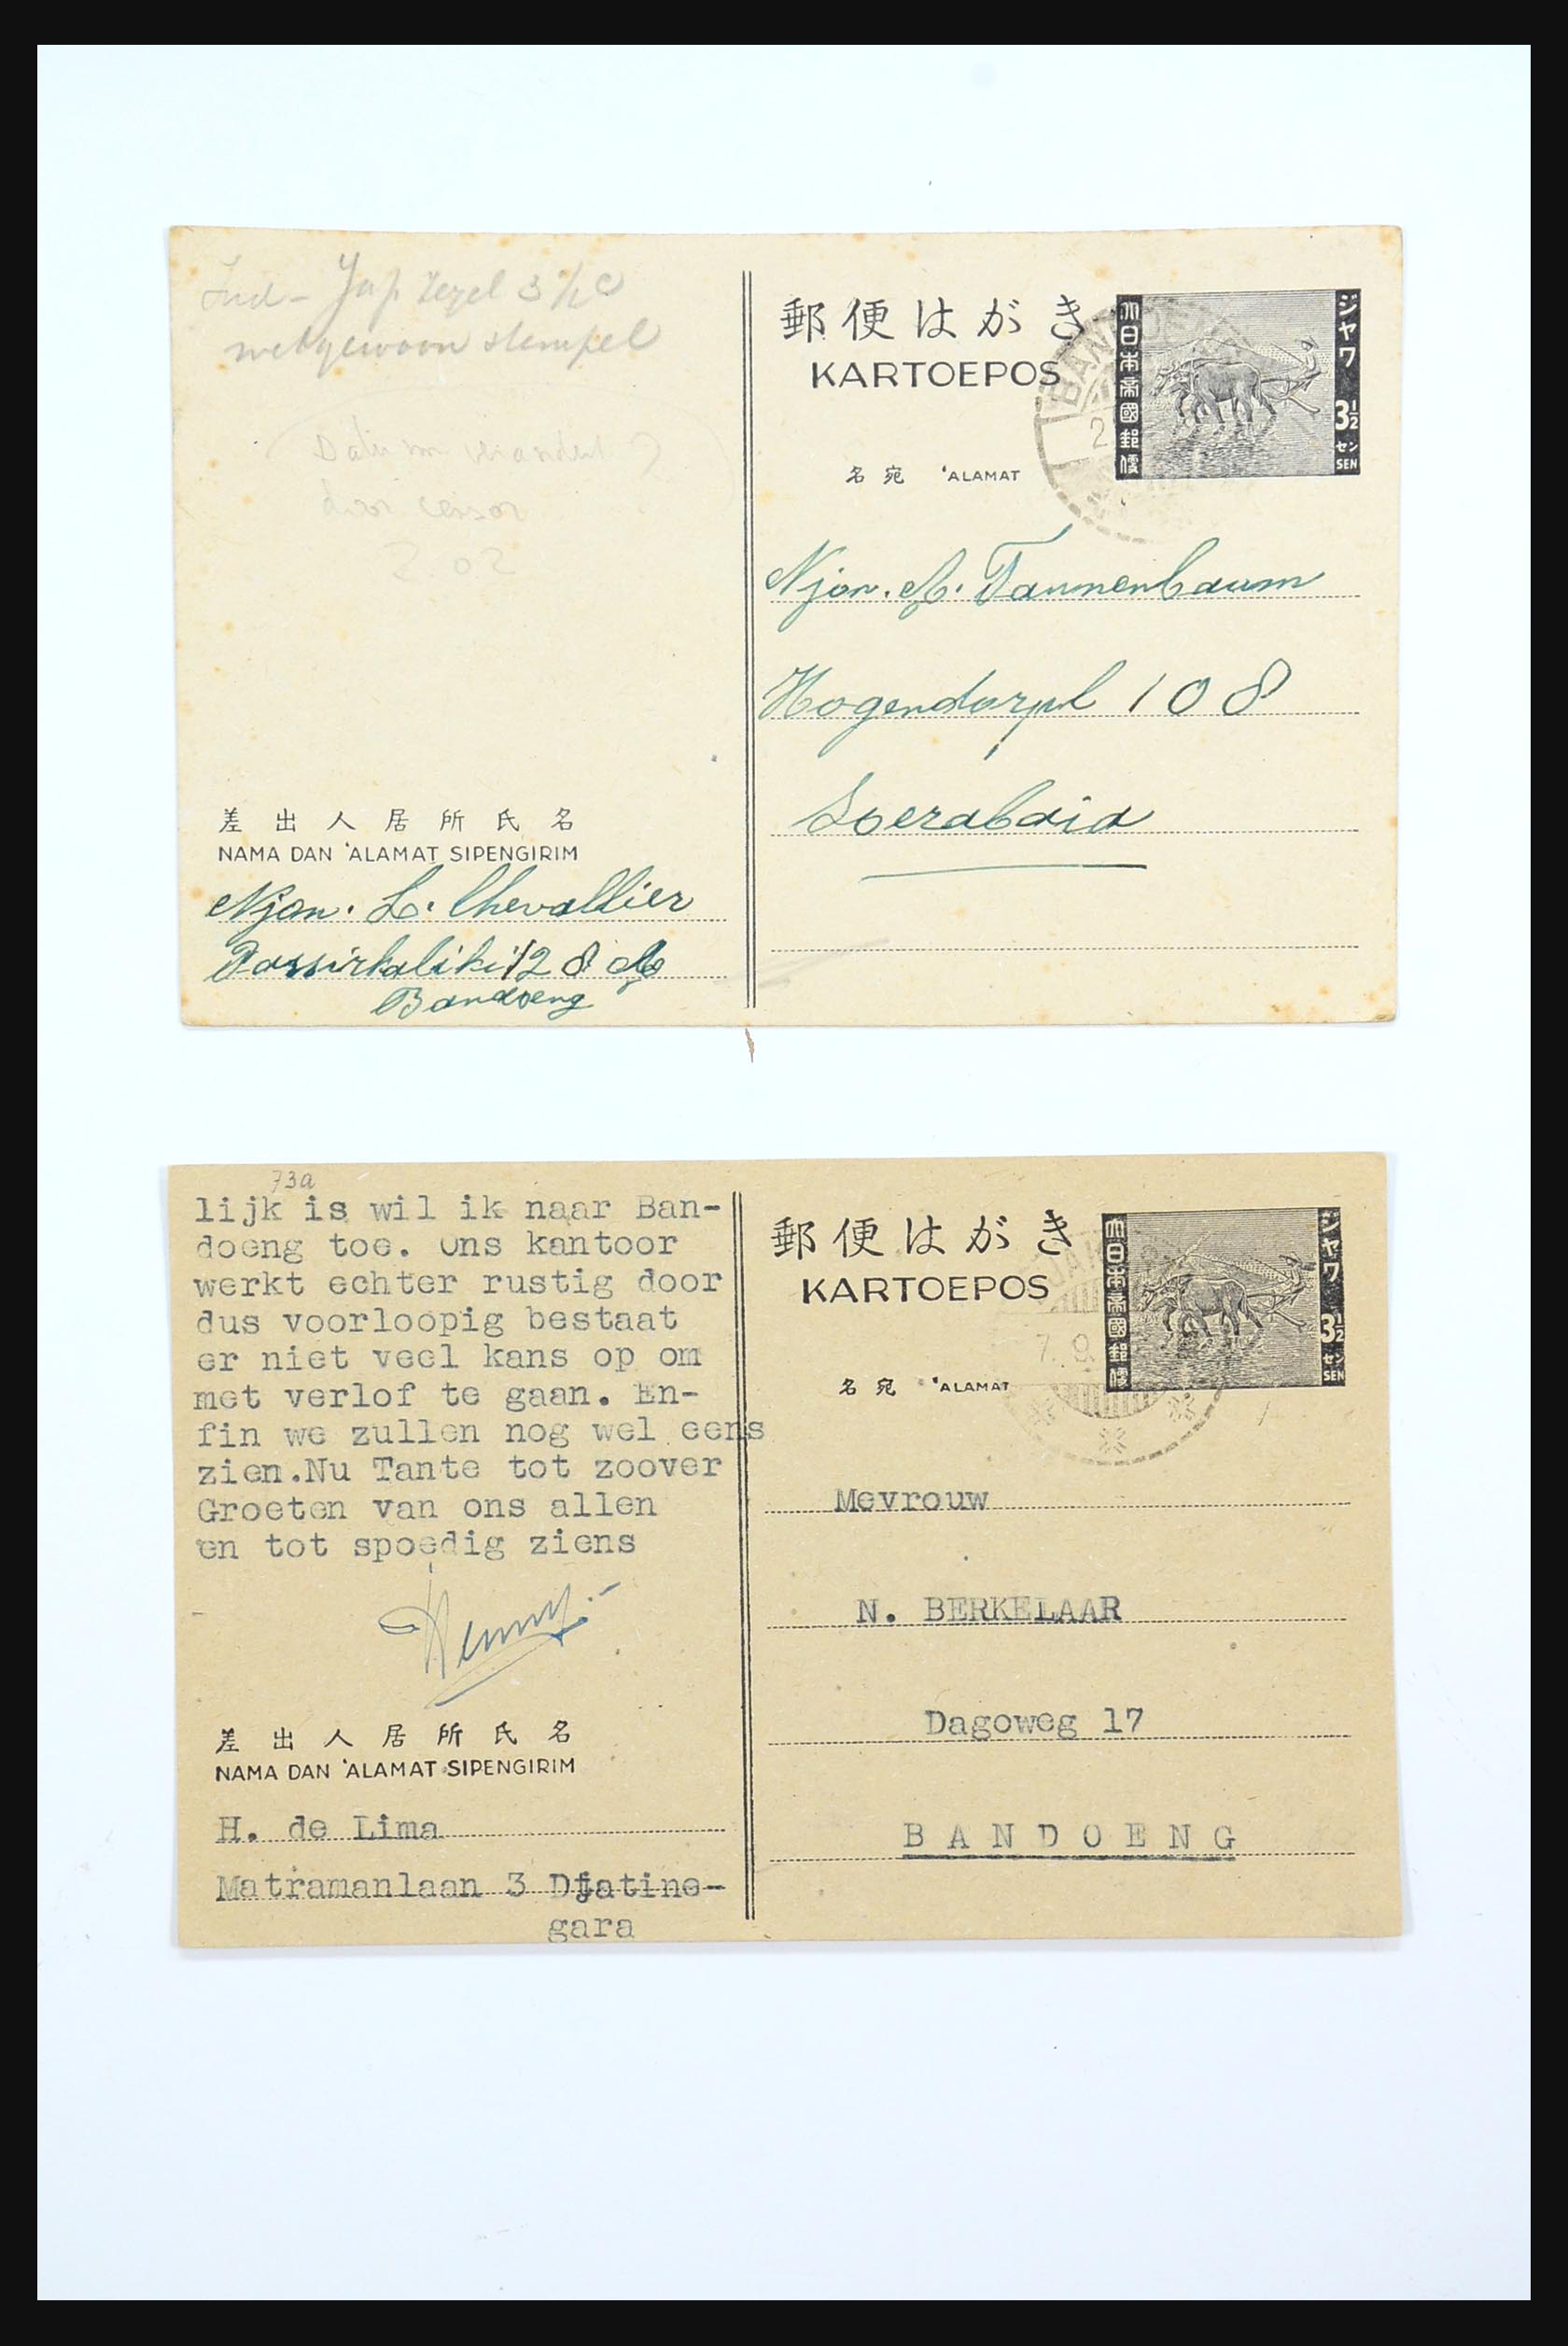 Ind - Jap zegel 3½ c
met gewoon stempel
Datum veranderd
door censor
2.02
差出人居所氏名
NAMA DAN 'ALAMAT SIPENGIRIM
Njon. L. Chevallier
Passirkaliki 128 A
Bandoeng
郵便はがき
KARTOEPOS
大日本帝國郵便
ジャワ
3½
セン
SEN
BANDOE
2
名宛 'ALAMAT
Njon. A. Tannenbaum
Hogendorpl 108
Soerabaia
73a
lijk is wil ik naar Ban-
doeng toe. Ons kantoor
werkt echter rustig door
dus voorloopig bestaat
er niet veel kans op om
met verlof te gaan. En-
fin we zullen nog wel eens
zien.Nu Tante tot zoover
Groeten van ons allen
en tot spoedig ziens
Henny.-
差出人居所氏名
NAMA DAN 'ALAMAT SIPENGIRIM
H. de Lima
Matramanlaan 3 Djatine-
gara
郵便はがき
KARTOEPOS
大日本帝國郵便
ジャワ
3½
セン
SEN
7. 9.
名宛 'ALAMAT
Mevrouw
N. BERKELAAR
Dagoweg 17
BANDOENG